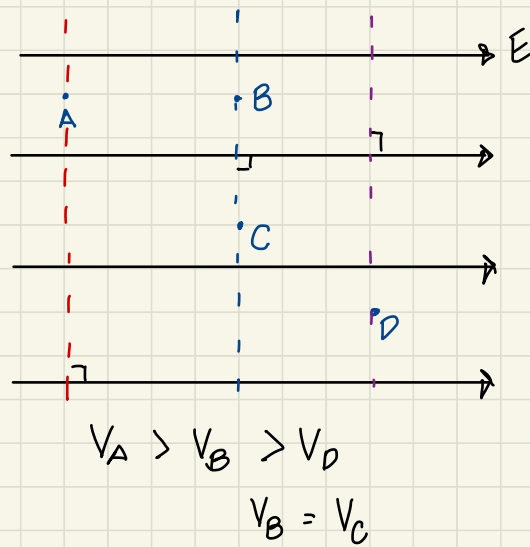 E
A
B
C
D
V_A > V_B > V_D
V_B = V_C